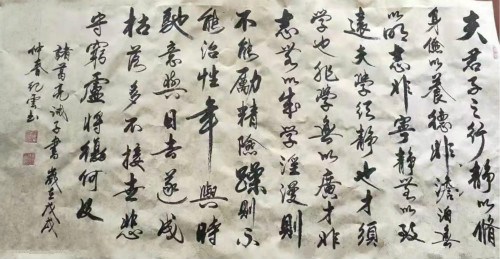 夫君子之行静以脩
身儉以養德非澹泊無
以明志非寧静無以致
遠夫學須静也才須
學也非學無以廣才非
志無以成學淫漫則
不能勵精險躁則不
能治性年與時
馳意與日去遂成
枯落多不接世悲
守窮廬將復何及
諸葛亮誡子書 歲在戊戌
仲春紀雲书